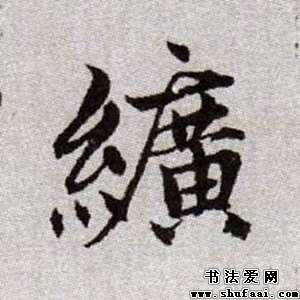 纊
书法爱网
www.shufaai.com